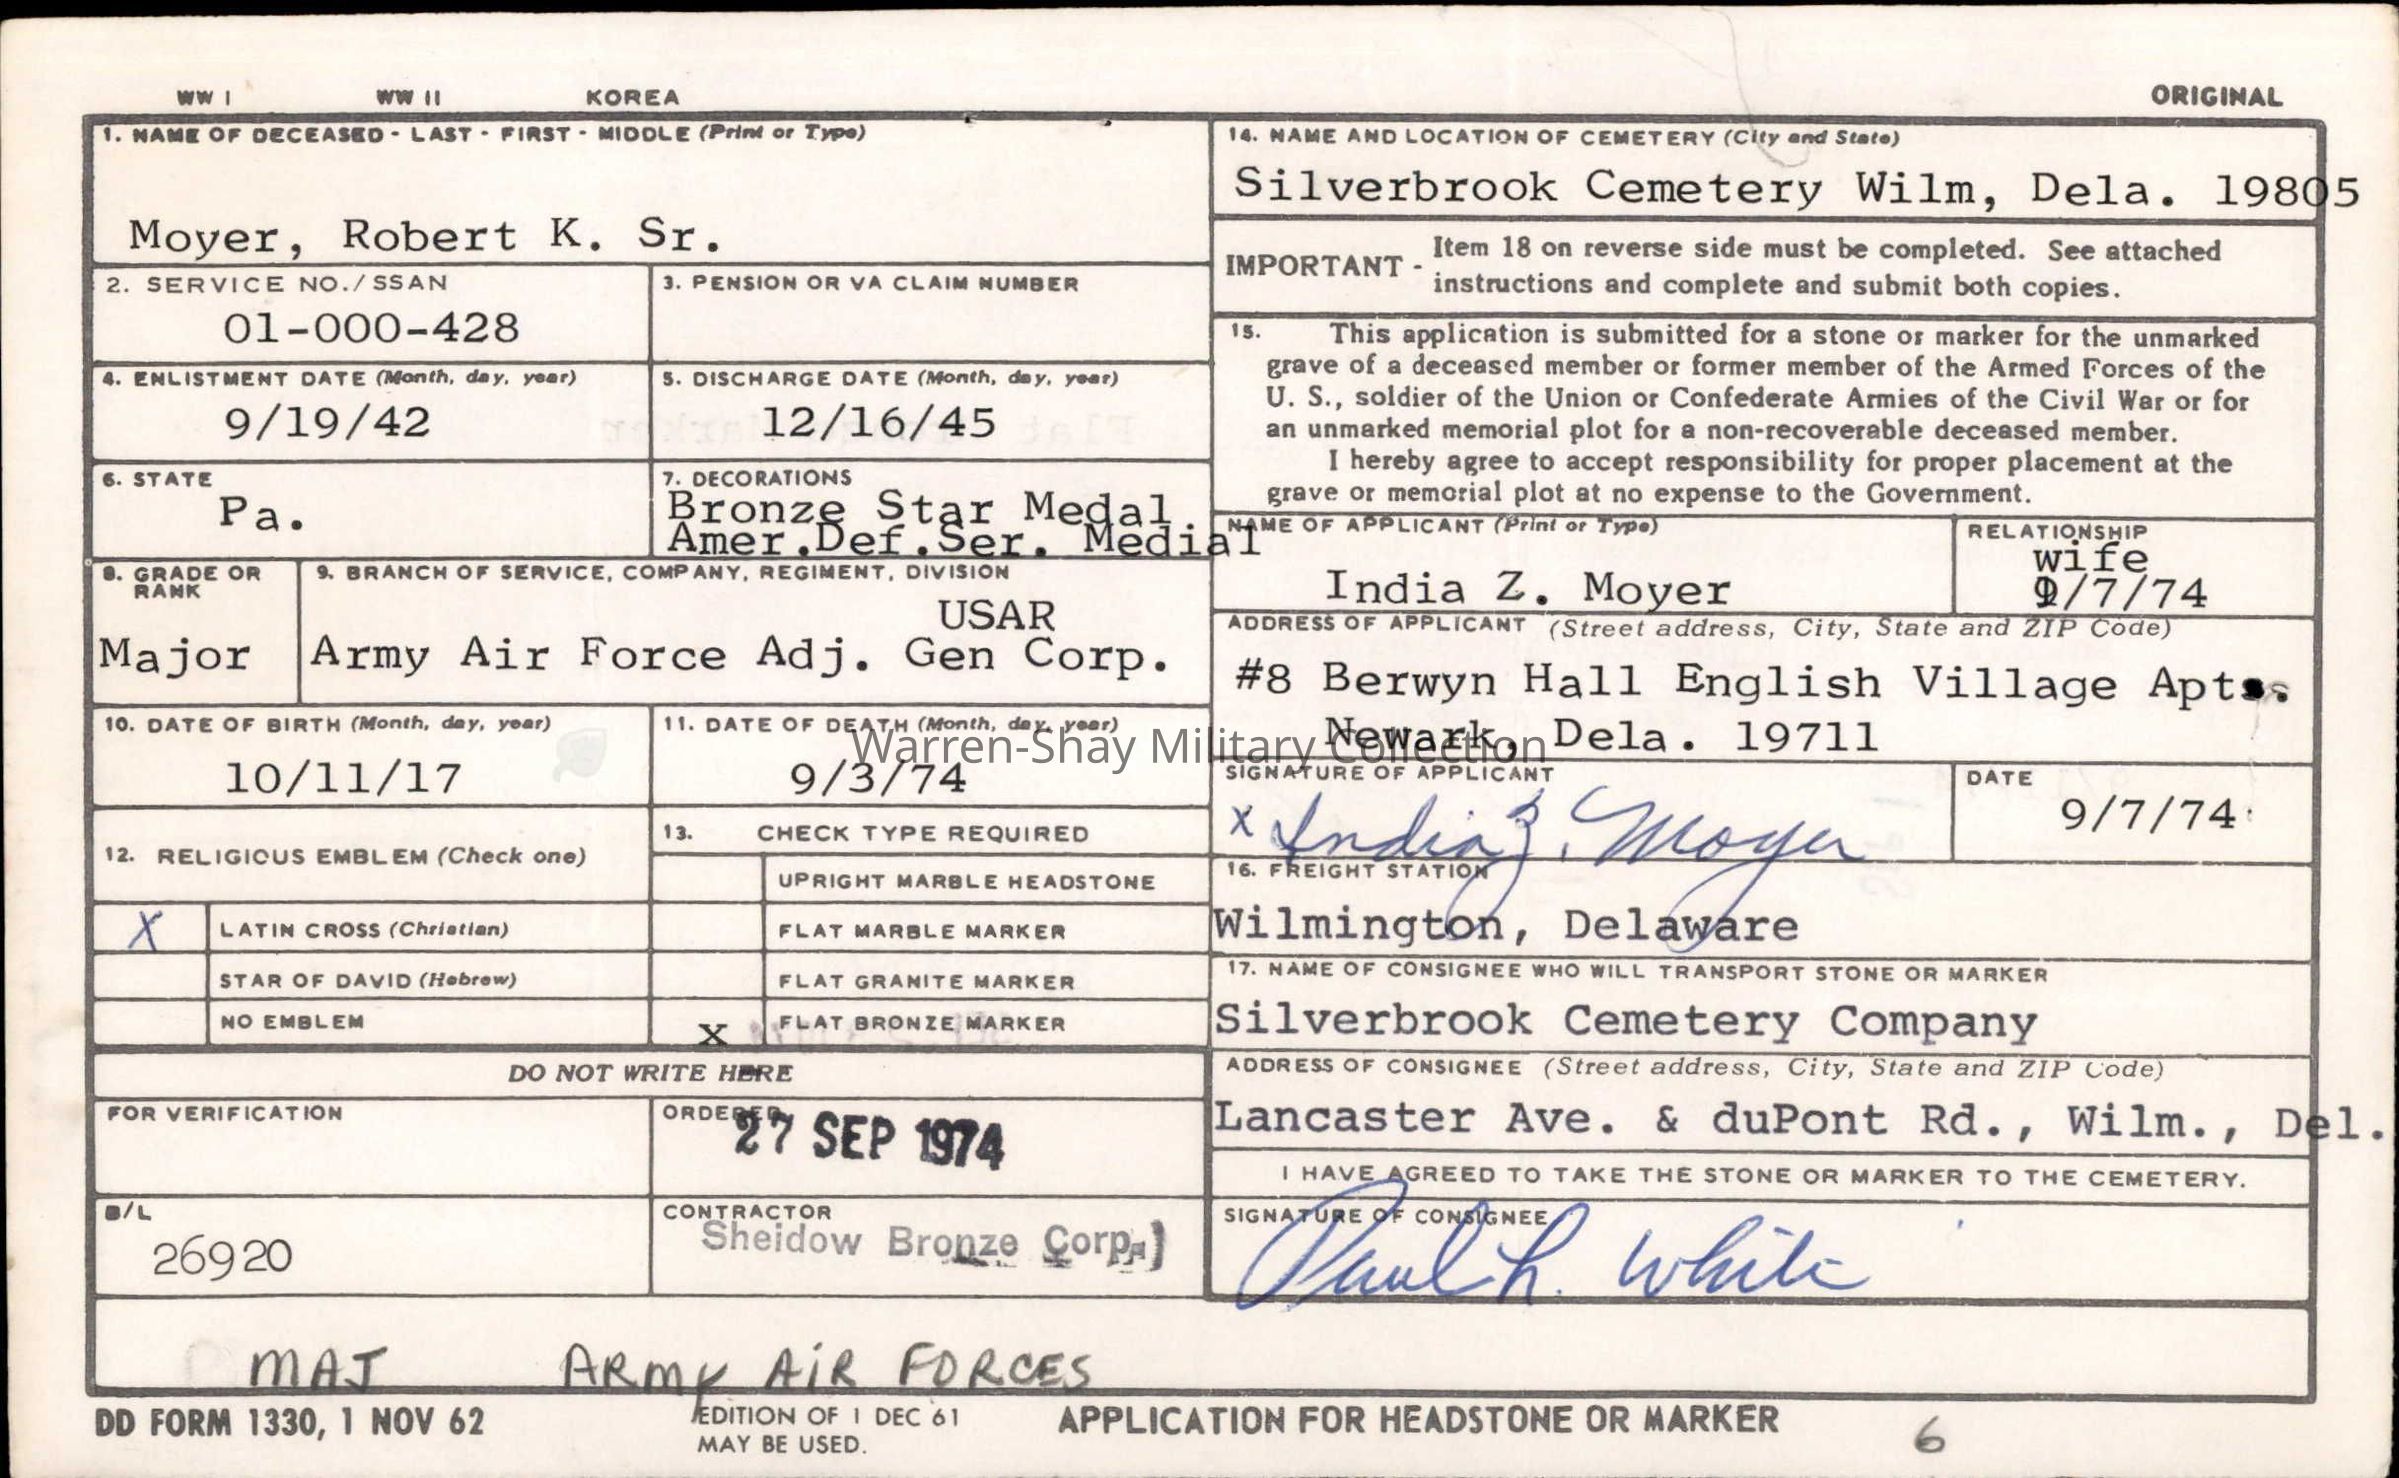 WW I WW II KOREA ORIGINAL
1. NAME OF DECEASED - LAST - FIRST - MIDDLE (Print or Type)
Moyer, Robert K. Sr.
2. SERVICE NO./SSAN
01-000-428
3. PENSION OR VA CLAIM NUMBER
4. ENLISTMENT DATE (Month, day, year)
9/19/42
5. DISCHARGE DATE (Month, day, year)
12/16/45
6. STATE
Pa.
7. DECORATIONS
Bronze Star Medal
Amer.Def.Ser. Medial
8. GRADE OR
RANK
Major
9. BRANCH OF SERVICE, COMPANY, REGIMENT, DIVISION
USAR
Army Air Force Adj. Gen Corp.
10. DATE OF BIRTH (Month, day, year)
10/11/17
11. DATE OF DEATH (Month, day, year)
9/3/74
12. RELIGIOUS EMBLEM (Check one)
X LATIN CROSS (Christian)
STAR OF DAVID (Hebrew)
NO EMBLEM
13. CHECK TYPE REQUIRED
UPRIGHT MARBLE HEADSTONE
FLAT MARBLE MARKER
FLAT GRANITE MARKER
X FLAT BRONZE MARKER
DO NOT WRITE HERE
FOR VERIFICATION
ORDERED
27 SEP 1974
B/L
26920
CONTRACTOR
Sheidow Bronze Corp.
14. NAME AND LOCATION OF CEMETERY (City and State)
Silverbrook Cemetery Wilm, Dela. 19805
IMPORTANT - Item 18 on reverse side must be completed. See attached
instructions and complete and submit both copies.
15. This application is submitted for a stone or marker for the unmarked
grave of a deceased member or former member of the Armed Forces of the
U. S., soldier of the Union or Confederate Armies of the Civil War or for
an unmarked memorial plot for a non-recoverable deceased member.
I hereby agree to accept responsibility for proper placement at the
grave or memorial plot at no expense to the Government.
NAME OF APPLICANT (Print or Type)
India Z. Moyer
RELATIONSHIP
wife
9/7/74
ADDRESS OF APPLICANT (Street address, City, State and ZIP Code)
#8 Berwyn Hall English Village Apts.
Newark, Dela. 19711
Warren-Shay Military Collection
SIGNATURE OF APPLICANT
x India Z. Moyer
DATE
9/7/74
16. FREIGHT STATION
Wilmington, Delaware
17. NAME OF CONSIGNEE WHO WILL TRANSPORT STONE OR MARKER
Silverbrook Cemetery Company
ADDRESS OF CONSIGNEE (Street address, City, State and ZIP Code)
Lancaster Ave. & duPont Rd., Wilm., Del.
I HAVE AGREED TO TAKE THE STONE OR MARKER TO THE CEMETERY.
SIGNATURE OF CONSIGNEE
Paul L. White
MAJ ARMY AIR FORCES
DD FORM 1330, 1 NOV 62
EDITION OF 1 DEC 61
MAY BE USED.
APPLICATION FOR HEADSTONE OR MARKER
6